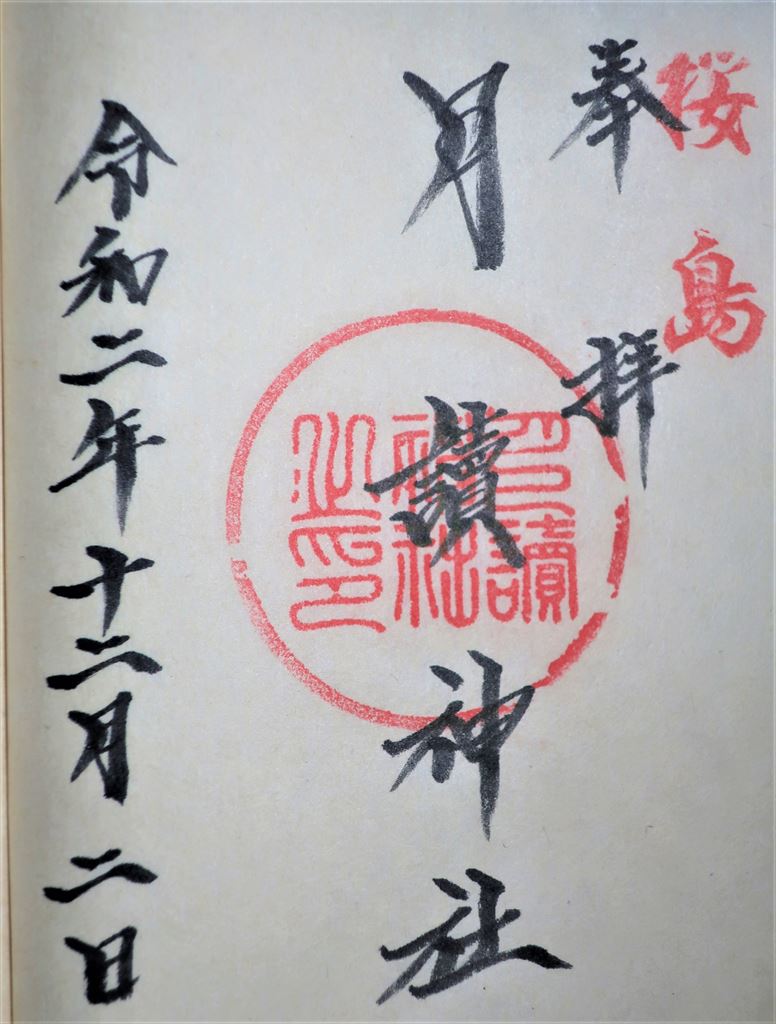 桜島
奉拝
月讀神社
月讀
神社
之印
令和二年十二月二日